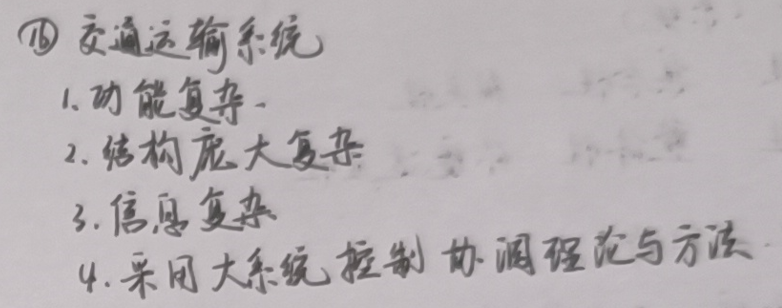 ⑯ 交通运输系统
1. 功能复杂.
2. 结构庞大复杂
3. 信息复杂
4. 采用大系统控制协调理论与方法.